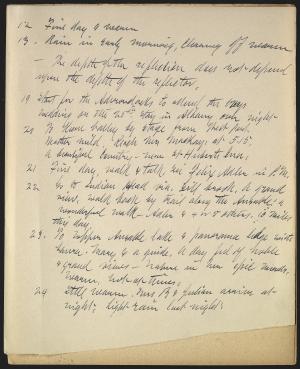 12 Fine day & warm
13. Rain in early morning, clearing off warm
— The depth of the reflection does not depend
upon the depth of the reflector.
19 Start for the Adirondacks to attend the
wedding on the 25th, stay in Albany over night
20 To Keene Valley by stage from Westport.
Weather mild. Reach Mrs at 5:15,
a beautiful country - now at Huberts Inn.
21 Fine day, walk & talk in Felix Adler in P.M.
22 Go to Indian Head via Gill brook, a grand
view, walk back by trail along the Ausable; a
wonderful walk. Adler & 4 or 5 others. 10 miles
this day
23. To Upper Ausable Lake & panorama ledge with
& a guide, a day full of noble
& grand views - nature in her epic moods.
warm, hot at times.
24 Still warm. Mrs B & Julian arrive at
night; light rain last night.